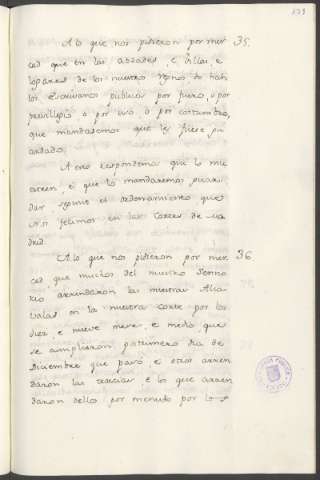 A lo que nos pidieron por mer
ced que en las cibdades, e villas, e
logares de los nuestro regnos do han
los Escrivanos publicos por fuero, o por
previllegio o por uso o por costumbre,
que mandasemos que les fuese gu
ardado,
A esto respondemos que lo mue
stren, e que lo mandaremos guar
dar, segunt el ordenamiento que
nos fecimos en las Cortes de Ma
drid.
A lo que nos pidieron por mer
ced que muchos del nuestro Senno
rio arrendaron las nuestras Alca
valas en la nuestra Corte por los
diez, e nueve meses, e medio, que
se cumplieron postrimero dia de
Diciembre que pasó, e otros arren
daron las tercias, e lo que arren
daron dello por menudo por lo
35.
36.